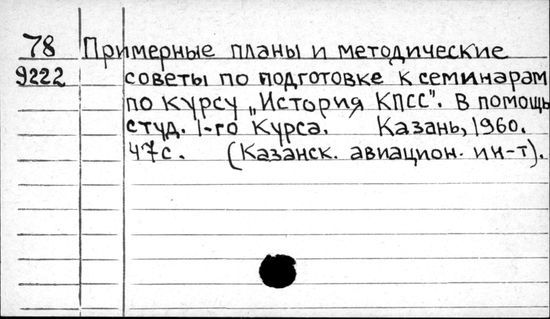 78 Примерные планы и методические
9222 советы по подготовке к семинарам
по курсу „История КПСС". В помощь
студ. 1-го курса. Казань, 1960.
47с. (Казанск. авиацион. ин-т).